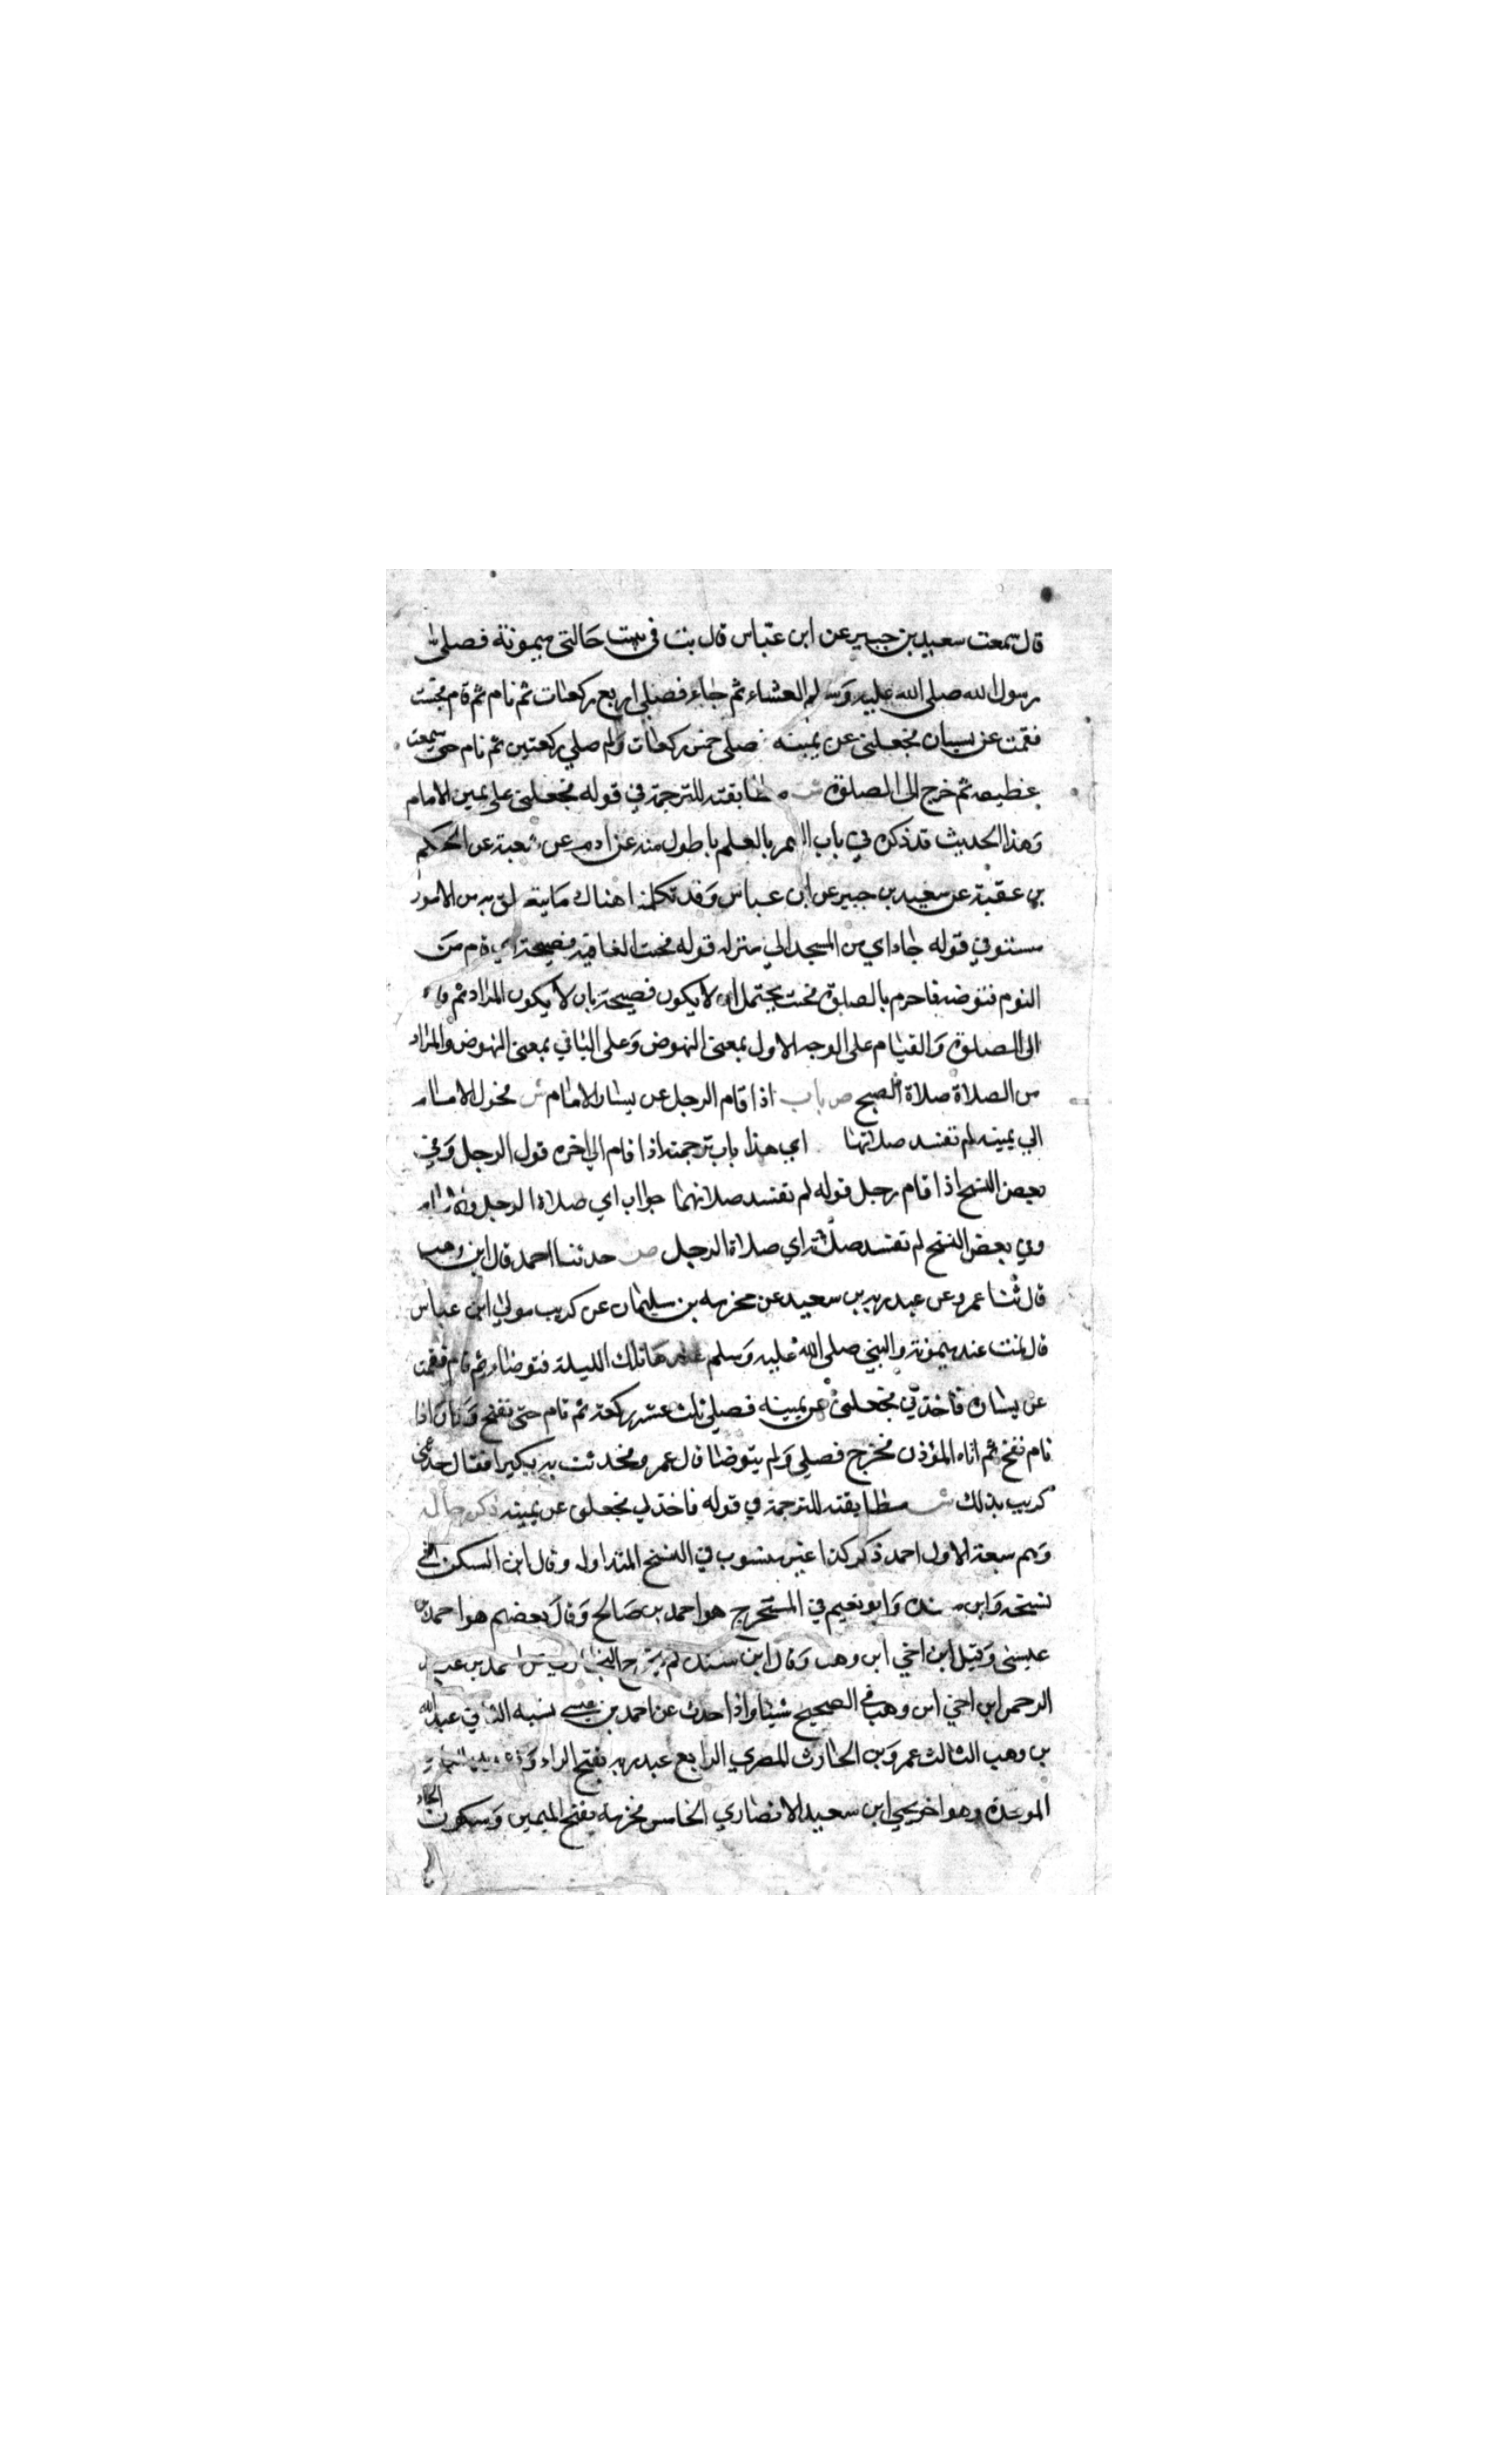 قال سمعت سعيد بن جبير عن ابن عباس قال بت في بيت خالتي ميمونة فصلى
رسول الله صلى الله عليه وسلم العشاء ثم جاء فصلى اربع ركعات ثم نام ثم قام فجئت
فقمت عن يساره فجعلني عن يمينه فصلى خمس ركعات ثم صلى ركعتين ثم نام حتى سمعت
غطيطه ثم خرج الى الصلوة ش مطابقته للترجمة في قوله فجعلني على يمين الامام
وهذا الحديث قد ذكره في باب السمر بالعلم باطول منه عن ادم عن شعبة عن الحكم
بن عقبة عن سعيد بن جبير عن ابن عباس وقد تكلمنا هناك ما يتعلق به من الامور
مستوفي قوله جاء اي من المسجد الي منزله قوله فجئت الفا فيه فصيحة اي قام من
النوم فتوضا فاحرم بالصلوة فجئت يحتمل ان لا يكون فصيحة بان لا يكون المراد ثم قام
الى الصلوة والقيام على الوجه الاول بمعنى النهوض وعلى الثاني بمعنى النهوض والمراد
من الصلاة صلاة الصبح ص باب اذا قام الرجل عن يسار الامام ش فحوله الامام
الي يمينه لم تفسد صلاتهما اي هذا باب ترجمته اذا قام الي اخره قوله الرجل وفي
بعض النسخ اذا قام رجل قوله لم تفسد صلاتهما جواب اي صلاة الرجل والامام
وفي بعض النسخ لم تفسد صلاته اي صلاة الرجل ص حدثنا احمد قال ابن وهب
قال ثنا عمرو عن عبد ربه بن سعيد عن مخرمه بن سليمان عن كريب مولي ابن عباس
قال نمت عند ميمونة والنبي صلى الله عليه وسلم عندها تلك الليلة فتوضا ثم قام فقمت
عن يساره فاخذني فجعلني عن يمينه فصلي ثلث عشر ركعة ثم نام حتى نفخ وكان اذا
نام نفخ ثم اتاه المؤذن فخرج فصلي ولم يتوضا قال عمرو فحدثت به بكيرا فقال حدثني
كريب بذلك ش مطابقته للترجمة في قوله فاخذني فجعلني عن يمينه ذكر رجاله
وهم سبعة الاول احمد ذكر كذا غير منسوب في النسخ المتداوله وقال ابن السكن في
نسخته وابن منده وابو نعيم في المستخرج هو احمد بن صالح وقال بعضهم هو احمد بن
عيسى وقيل ابن اخي ابن وهب وقال ابن منده لم يخرج البخاري عن احمد بن عبد
الرحمن ابن اخي ابن وهب في الصحيح شيئا واذا حدث عن احمد بن عيسى نسبه الثاني عبد الله
بن وهب الثالث عمرو بن الحارث المصري الرابع عبد ربه بفتح الراء
الموحدة وهو اخو يحيي ابن سعيد الانصاري الخامس مخرمة بفتح الميمين وسكون الخاء